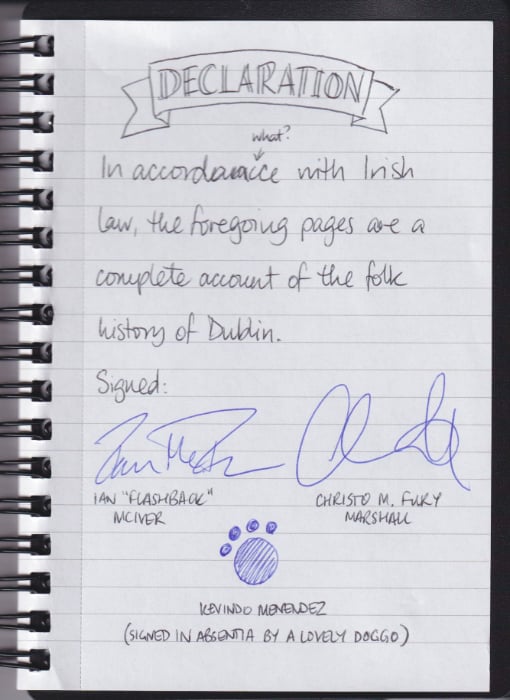 DECLARATION
what?
In accordamcce with Irish
law, the foregoing pages are a
complete account of the folk
history of Dublin.
Signed:
IAN "FLASHBACK"
MCIVER
CHRISTO M. FURY
MARSHALL
KEVINDO MENENDEZ
(SIGNED IN ABSENTIA BY A LOVELY DOGGO)